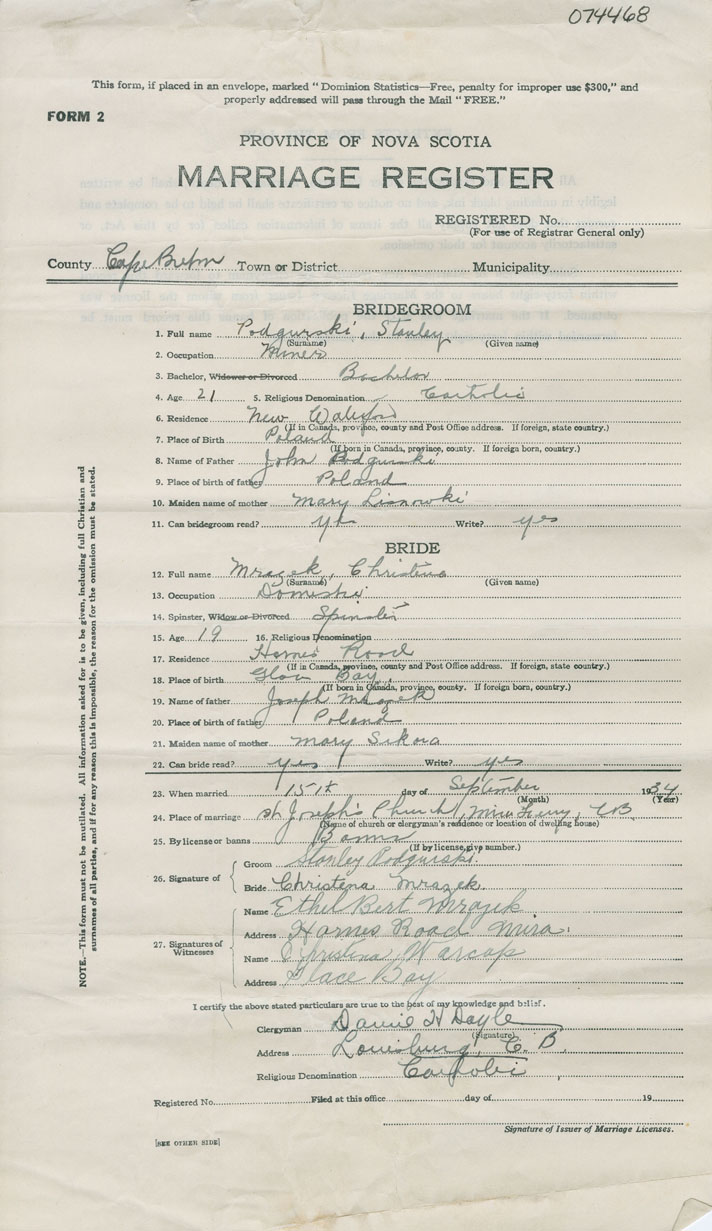 074468
This form, if placed in an envelope, marked "Dominion Statistics—Free, penalty for improper use $300," and
properly addressed will pass through the Mail "FREE."
FORM 2
PROVINCE OF NOVA SCOTIA
MARRIAGE REGISTER
REGISTERED No.
(For use of Registrar General only)
County Cape Breton Town or District Municipality
BRIDEGROOM
1. Full name Podgurski, Stanley
(Surname) (Given name)
2. Occupation Miner
3. Bachelor, Widower or Divorced Bachelor
4. Age 21 5. Religious Denomination Catholic
6. Residence New Waterford
(If in Canada, province, county and Post Office address. If foreign, state country.)
7. Place of Birth Poland
(If born in Canada, province, county. If foreign born, country.)
8. Name of Father John Podgurski
9. Place of birth of father Poland
10. Maiden name of mother Mary Lisnowski
11. Can bridegroom read? yes Write? yes
BRIDE
12. Full name Mrazek, Christena
(Surname) (Given name)
13. Occupation Domestic
14. Spinster, Widow or Divorced Spinster
15. Age 19 16. Religious Denomination
17. Residence Hornes Road
(If in Canada, province, county and Post Office address. If foreign, state country.)
18. Place of birth Glace Bay
(If born in Canada, province, county. If foreign born, country.)
19. Name of father Joseph Mrazek
20. Place of birth of father Poland
21. Maiden name of mother Mary Sikora
22. Can bride read? yes Write? yes
23. When married 15th day of September 1934
(Month) (Year)
24. Place of marriage St Joseph's Church, C B
(Name of church or clergyman's residence or location of dwelling house)
25. By license or banns Banns
(If by license, give number.)
26. Signature of
Groom Stanley Podgurski.
Bride Christena Mrazek.
27. Signatures of Witnesses
Name Ethel Bert Mrazek.
Address Hornes Road Mira.
Name Christina Warcop
Address Glace Bay
I certify the above stated particulars are true to the best of my knowledge and belief.
Clergyman H Doyle
(Signature)
Address Louisburg, C. B.
Religious Denomination Catholic
Registered No. Filed at this office day of 19
Signature of Issuer of Marriage Licenses.
[SEE OTHER SIDE]
NOTE.—This form must not be mutilated. All information asked for is to be given, including full Christian and
surnames of all parties, and if for any reason this is impossible, the reason for the omission must be stated.